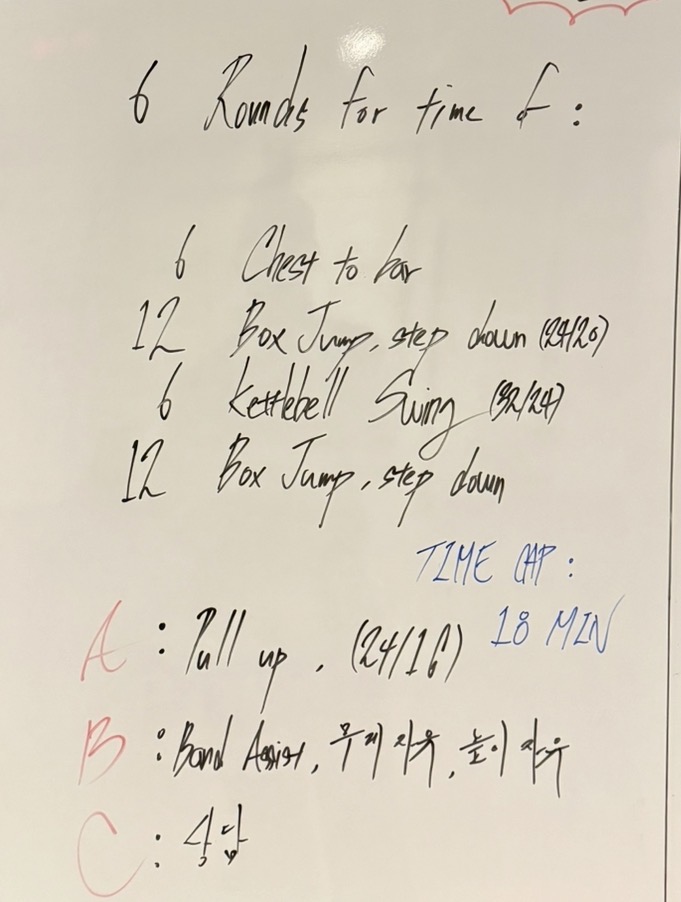 6 Rounds for time of :
6 Chest to bar
12 Box Jump, step down (24/20)
6 Kettlebell Swing (32/24)
12 Box Jump, step down
TIME CAP :
18 MIN
A : Pull up , (24/16)
B : Band Assist, 무게 자유, 높이 자유
C : 상담